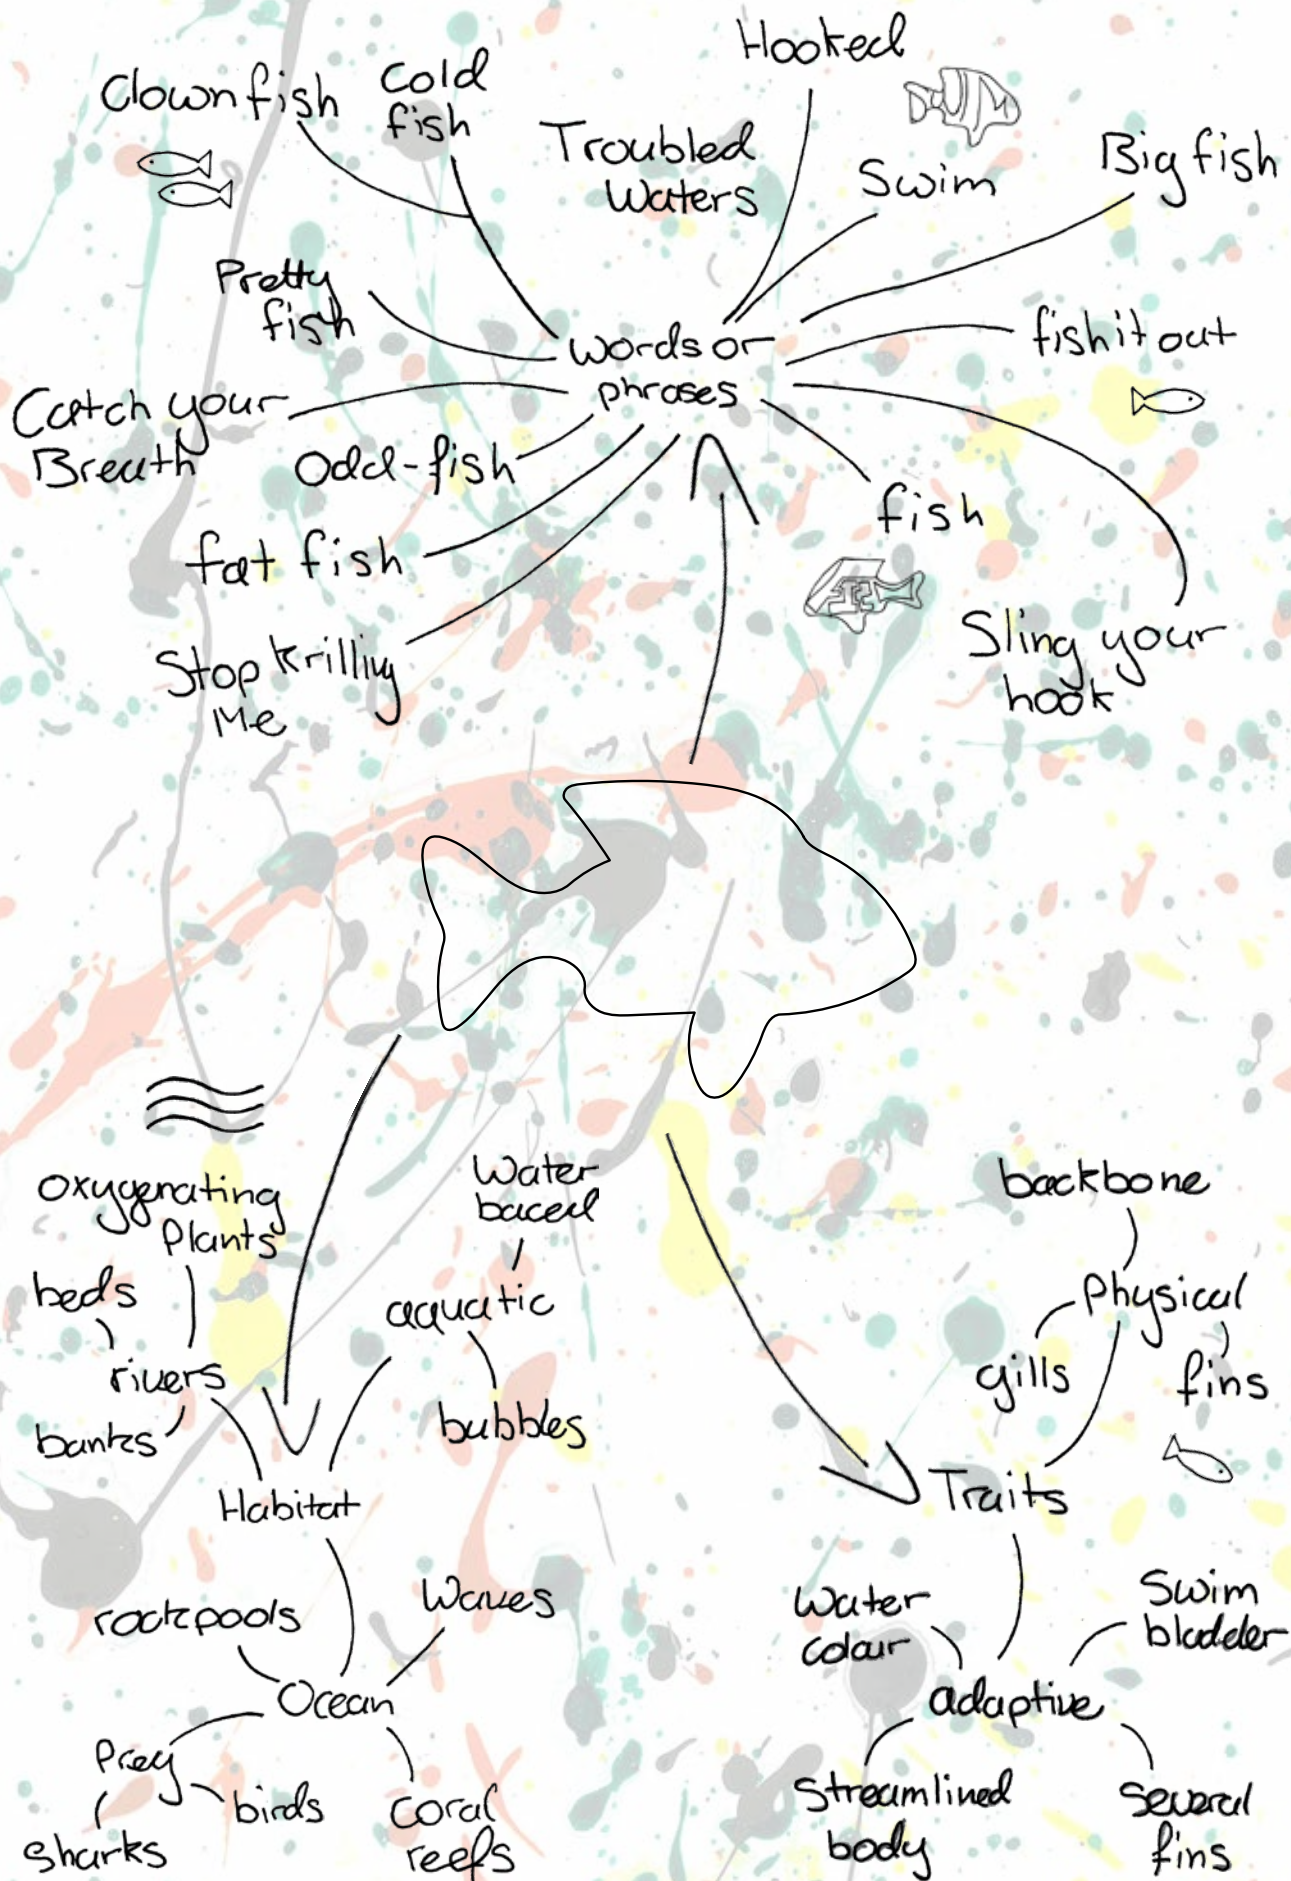 Hooked
Clown fish
Cold
fish
Troubled
Waters
Swim
Big fish
Pretty
fish
words or
phrases
fish it out
Catch your
Breath
Odd-fish
fish
fat fish
Sling your
hook
Stop Krilling
Me
oxygenating
Plants
Water
baced
backbone
beds
aquatic
Physical
rivers
gills
fins
banks
bubbles
Habitat
Traits
rockpools
Waves
Water
colour
Swim
bladder
Ocean
adaptive
Prey
birds
coral
reefs
sharks
Streamlined
body
Several
fins